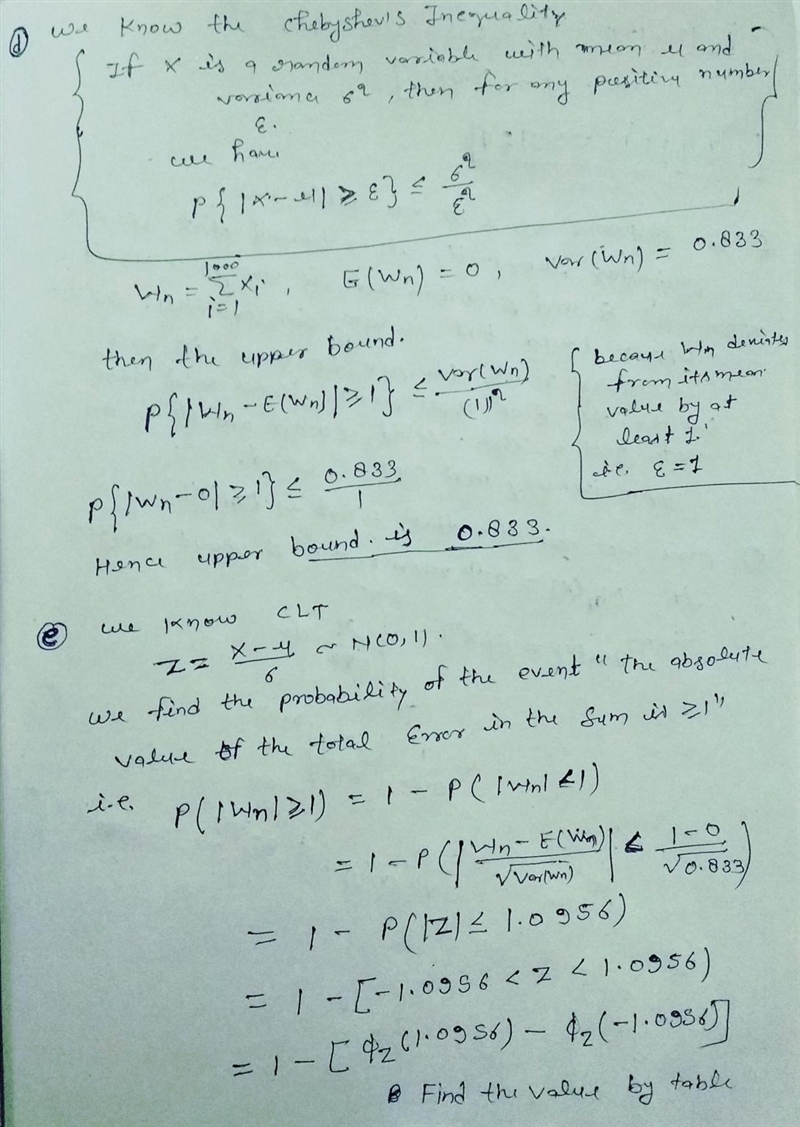 (d) We know the Chebyshev's Inequality
If X is a random variable with mean μ and
variance σ², then for any positive number
ε.
we have
P{ |X-μ| ≥ ε} ≤ σ²/ε²
Wn = 1000 Σ i=1 Xi, E(Wn) = 0, Var(Wn) = 0.833
then the upper bound.
P{|Wn - E(Wn)| ≥ 1} ≤ Var(Wn)/(1)²
because Wn deviates
from its mean
value by at
least 1.
i.e. ε = 1
P{|Wn - 0| ≥ 1} ≤ 0.833/1
Hence upper bound. is 0.833.
(e) we know CLT
Z = X-μ/σ ~ N(0,1).
We find the probability of the event "the absolute
value of the total Error in the Sum is ≥1"
i.e. P(|Wn| ≥ 1) = 1 - P(|Wn| < 1)
= 1 - P(|Wn - E(Wn)/√Var(Wn)| ≤ 1-0/√0.833)
= 1 - P(|Z| ≤ 1.0956)
= 1 - [-1.0956 < Z < 1.0956)
= 1 - [ϕz(1.0956) - ϕz(-1.0956)]
Find the value by table